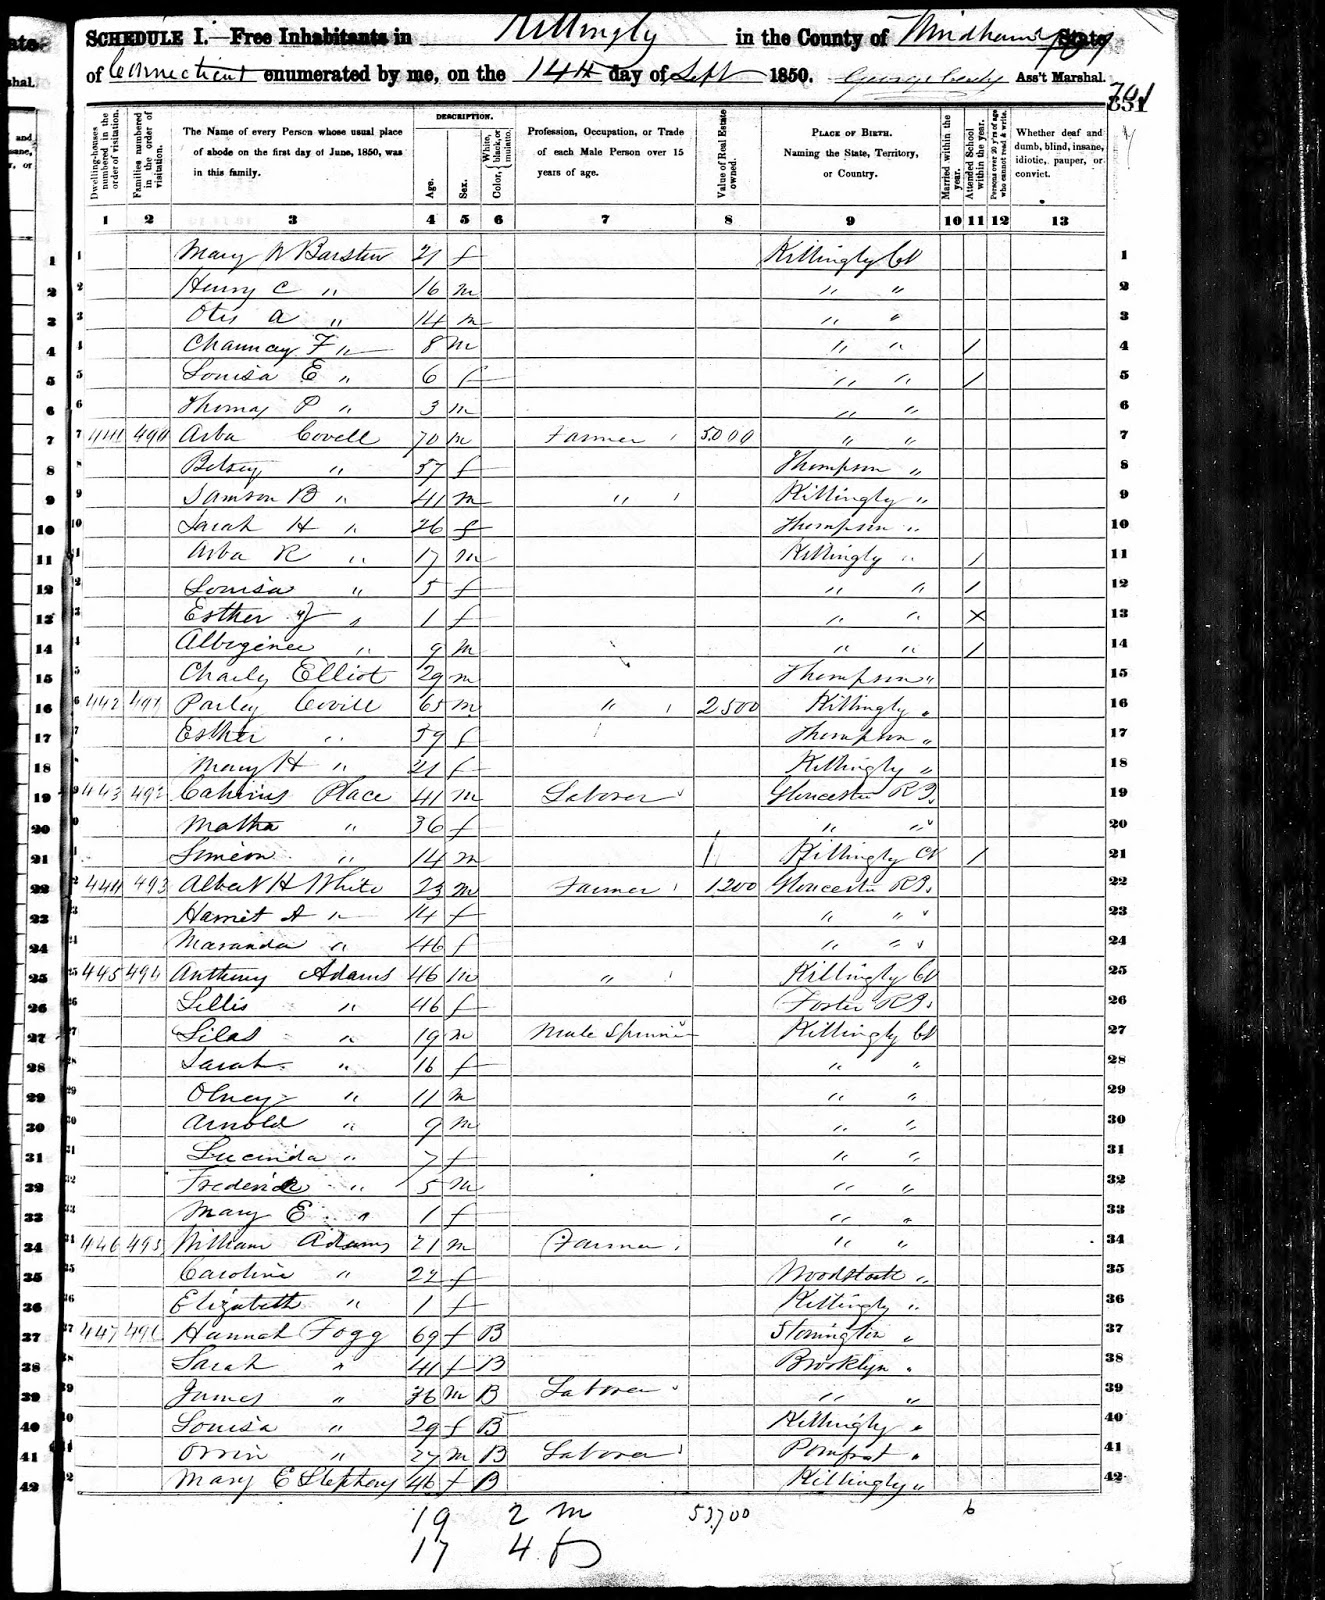 SCHEDULE I.—Free Inhabitants in Killingly in the County of Windham State
of Connecticut enumerated by me, on the 14th day of Sept 1850. George Ass't Marshal.
701
831
Dwelling-houses numbered in the order of visitation.
Families numbered in the order of visitation.
The Name of every Person whose usual place of abode on the first day of June, 1850, was in this family.
DESCRIPTION.
Age.
Sex.
Color, { White, black, or mulatto.
Profession, Occupation, or Trade of each Male Person over 15 years of age.
Value of Real Estate owned.
PLACE OF BIRTH. Naming the State, Territory, or Country.
Married within the year.
Attended School within the year.
Persons over 20 y'rs of age who cannot read & write.
Whether deaf and dumb, blind, insane, idiotic, pauper, or convict.
1 2 3 4 5 6 7 8 9 10 11 12 13
1 Mary 21 f Killingly Ct 1
2 Henry C " 16 m " " 2
3 Otis A " 14 m " " 3
4 Chauncey F " 8 m " " / 4
5 Louisa E " 6 f " " / 5
6 Thomas P " 3 m " " 6
7 441 490 Arba Covell 70 m Farmer 5000 " " 7
8 Betsey " 57 f Thompson " 8
9 Samson B " 41 m " Killingly " 9
10 Sarah H " 26 f Thompson " 10
11 Arba R " 17 m Killingly " / 11
12 Louisa " 5 f " " / 12
13 Esther " 1 f " " X 13
14 Albigence " 9 m " " / 14
15 Charles Elliot 29 m Thompson " 15
16 442 491 Parley Covill 65 m " 2500 Killingly " 16
17 Esther " 59 f Thompson " 17
18 Mary H " 21 f Killingly " 18
19 443 492 Place 41 m Laborer Gloucester R I. 19
20 Matha " 36 f " " 20
21 Simeon " 14 m Killingly Ct / 21
22 444 493 Albert H White 23 m Farmer 1200 Gloucester R I. 22
23 Harriet A " 14 f " " 23
24 Maranda " 46 f " " 24
25 445 494 Anthony Adams 46 m " Killingly Ct 25
26 Lillis " 46 f Foster R I. 26
27 Silas " 19 m Mule Spinner Killingly Ct 27
28 Sarah " 16 f " " 28
29 Olney " 11 m " " 29
30 Arnold " 9 m " " 30
31 Lucinda " 7 f " " 31
32 Frederick " 5 m " " 32
33 Mary E " 1 f " " 33
34 446 495 William Adams 21 m Farmer " " 34
35 Caroline " f Woodstock " 35
36 Elizabeth " 1 f Killingly " 36
37 447 496 Hannah Fogg 69 f B Stonington " 37
38 Sarah " 41 f B Brooklyn " 38
39 James " 36 m B Laborer " " 39
40 Louisa " 29 f B Killingly " 40
41 Orrin " 27 m B Laborer Pomfret " 41
42 Mary E Stephens 46 f B Killingly " 42
19 2 m 6
17 4 f